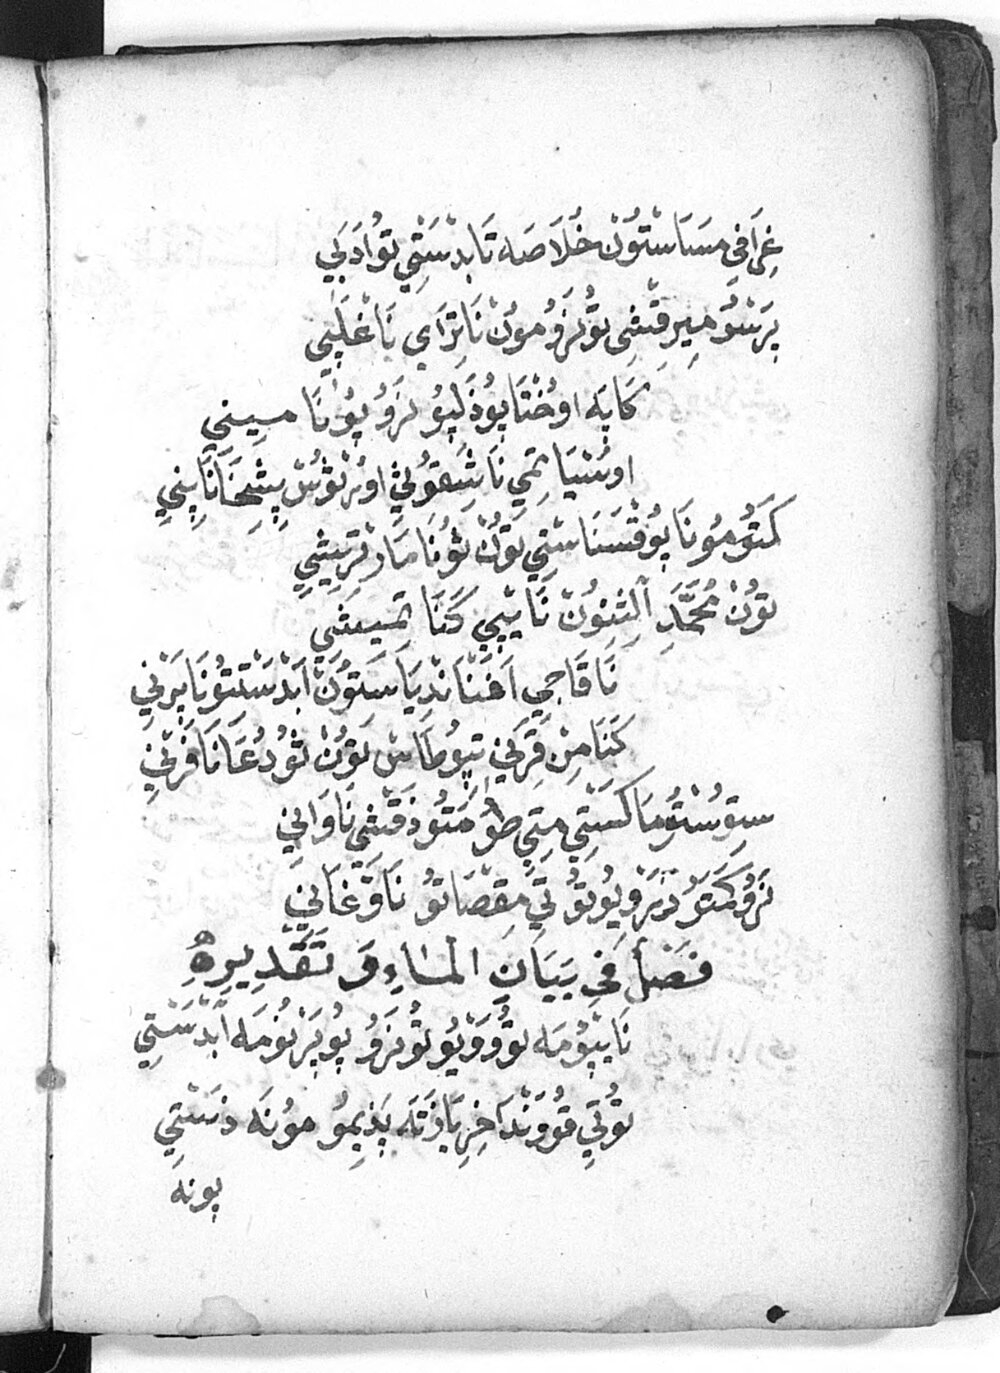 غِرَافِي مَسَاسْتُونْ خُلَاصَه تَابدَسَتِي تُوْ اَدَبِي
پرَسْوُمِيرِقْشِى تُوْنَزوُمُونْ نَاتِرَاي نَاغَلَپِي
كَايَه اوُخْتَاپُوذَلِپُو نَزوُ پُوْنَا مِسِينِي
اوُسْيَا تِمِي نَاشِقَوُلِي اوُرْتُوسْ پِشِحَنَا نَاپِنِي
كَمَتوُ مُونَا پُوقْسَنَاسْتِي تُوُنْ نُونَا مَارْتِرِيشِي
تُونْ مُحَمَّدِ اَلِثِنُونْ نَاپِيپِي كَنَا تِمِيشِي
نَاقَاجِي اَغْنَانْدِيَا سَتوُنْ اَبْدَسْتِتُونَا پَرْنِي
كَنَا مِنْ قِرَكِي تِپُوطَاسْ تُونْ ثُودُعَا نَافَرْنِي
سِتوُسْتوُمَا كَسْتِي مِتِي طوُ مَتوُ ذَقْشِي نَاوَانِي
نَزوُ كَتوُ نَرَوِيُوتُو تِي مِقِصَاتوُ نَاوْغَانِي
فَصْلْ فِي بَيَانِ الْمَاءِ وَ تَقْدِيرِهُ
نَاپِيُومَه تُووَوْيُوتُو نَزوُ پُوپَرْنُومَه اَبْدَسْتِي
تُوتِي قوُوَنْدَاخِرِيَازَتَه پَذِيمُو مُونَه دَسْتِي
پونه